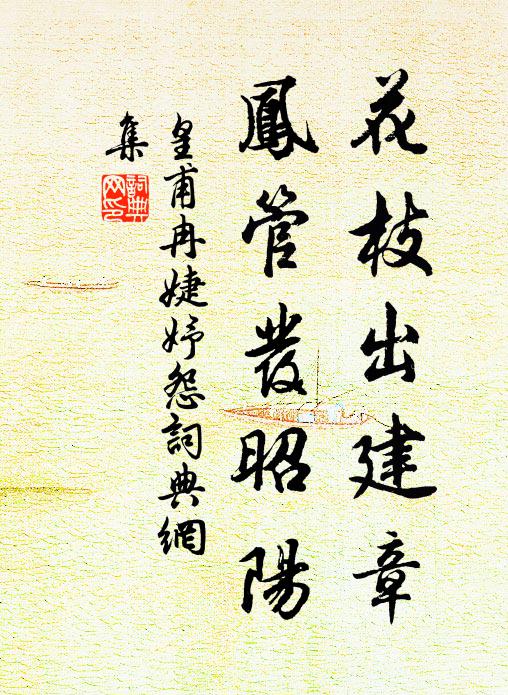 花枝出建章
鳳管發昭陽
皇甫冉婕妤怨詞典網
集
詞典
网印